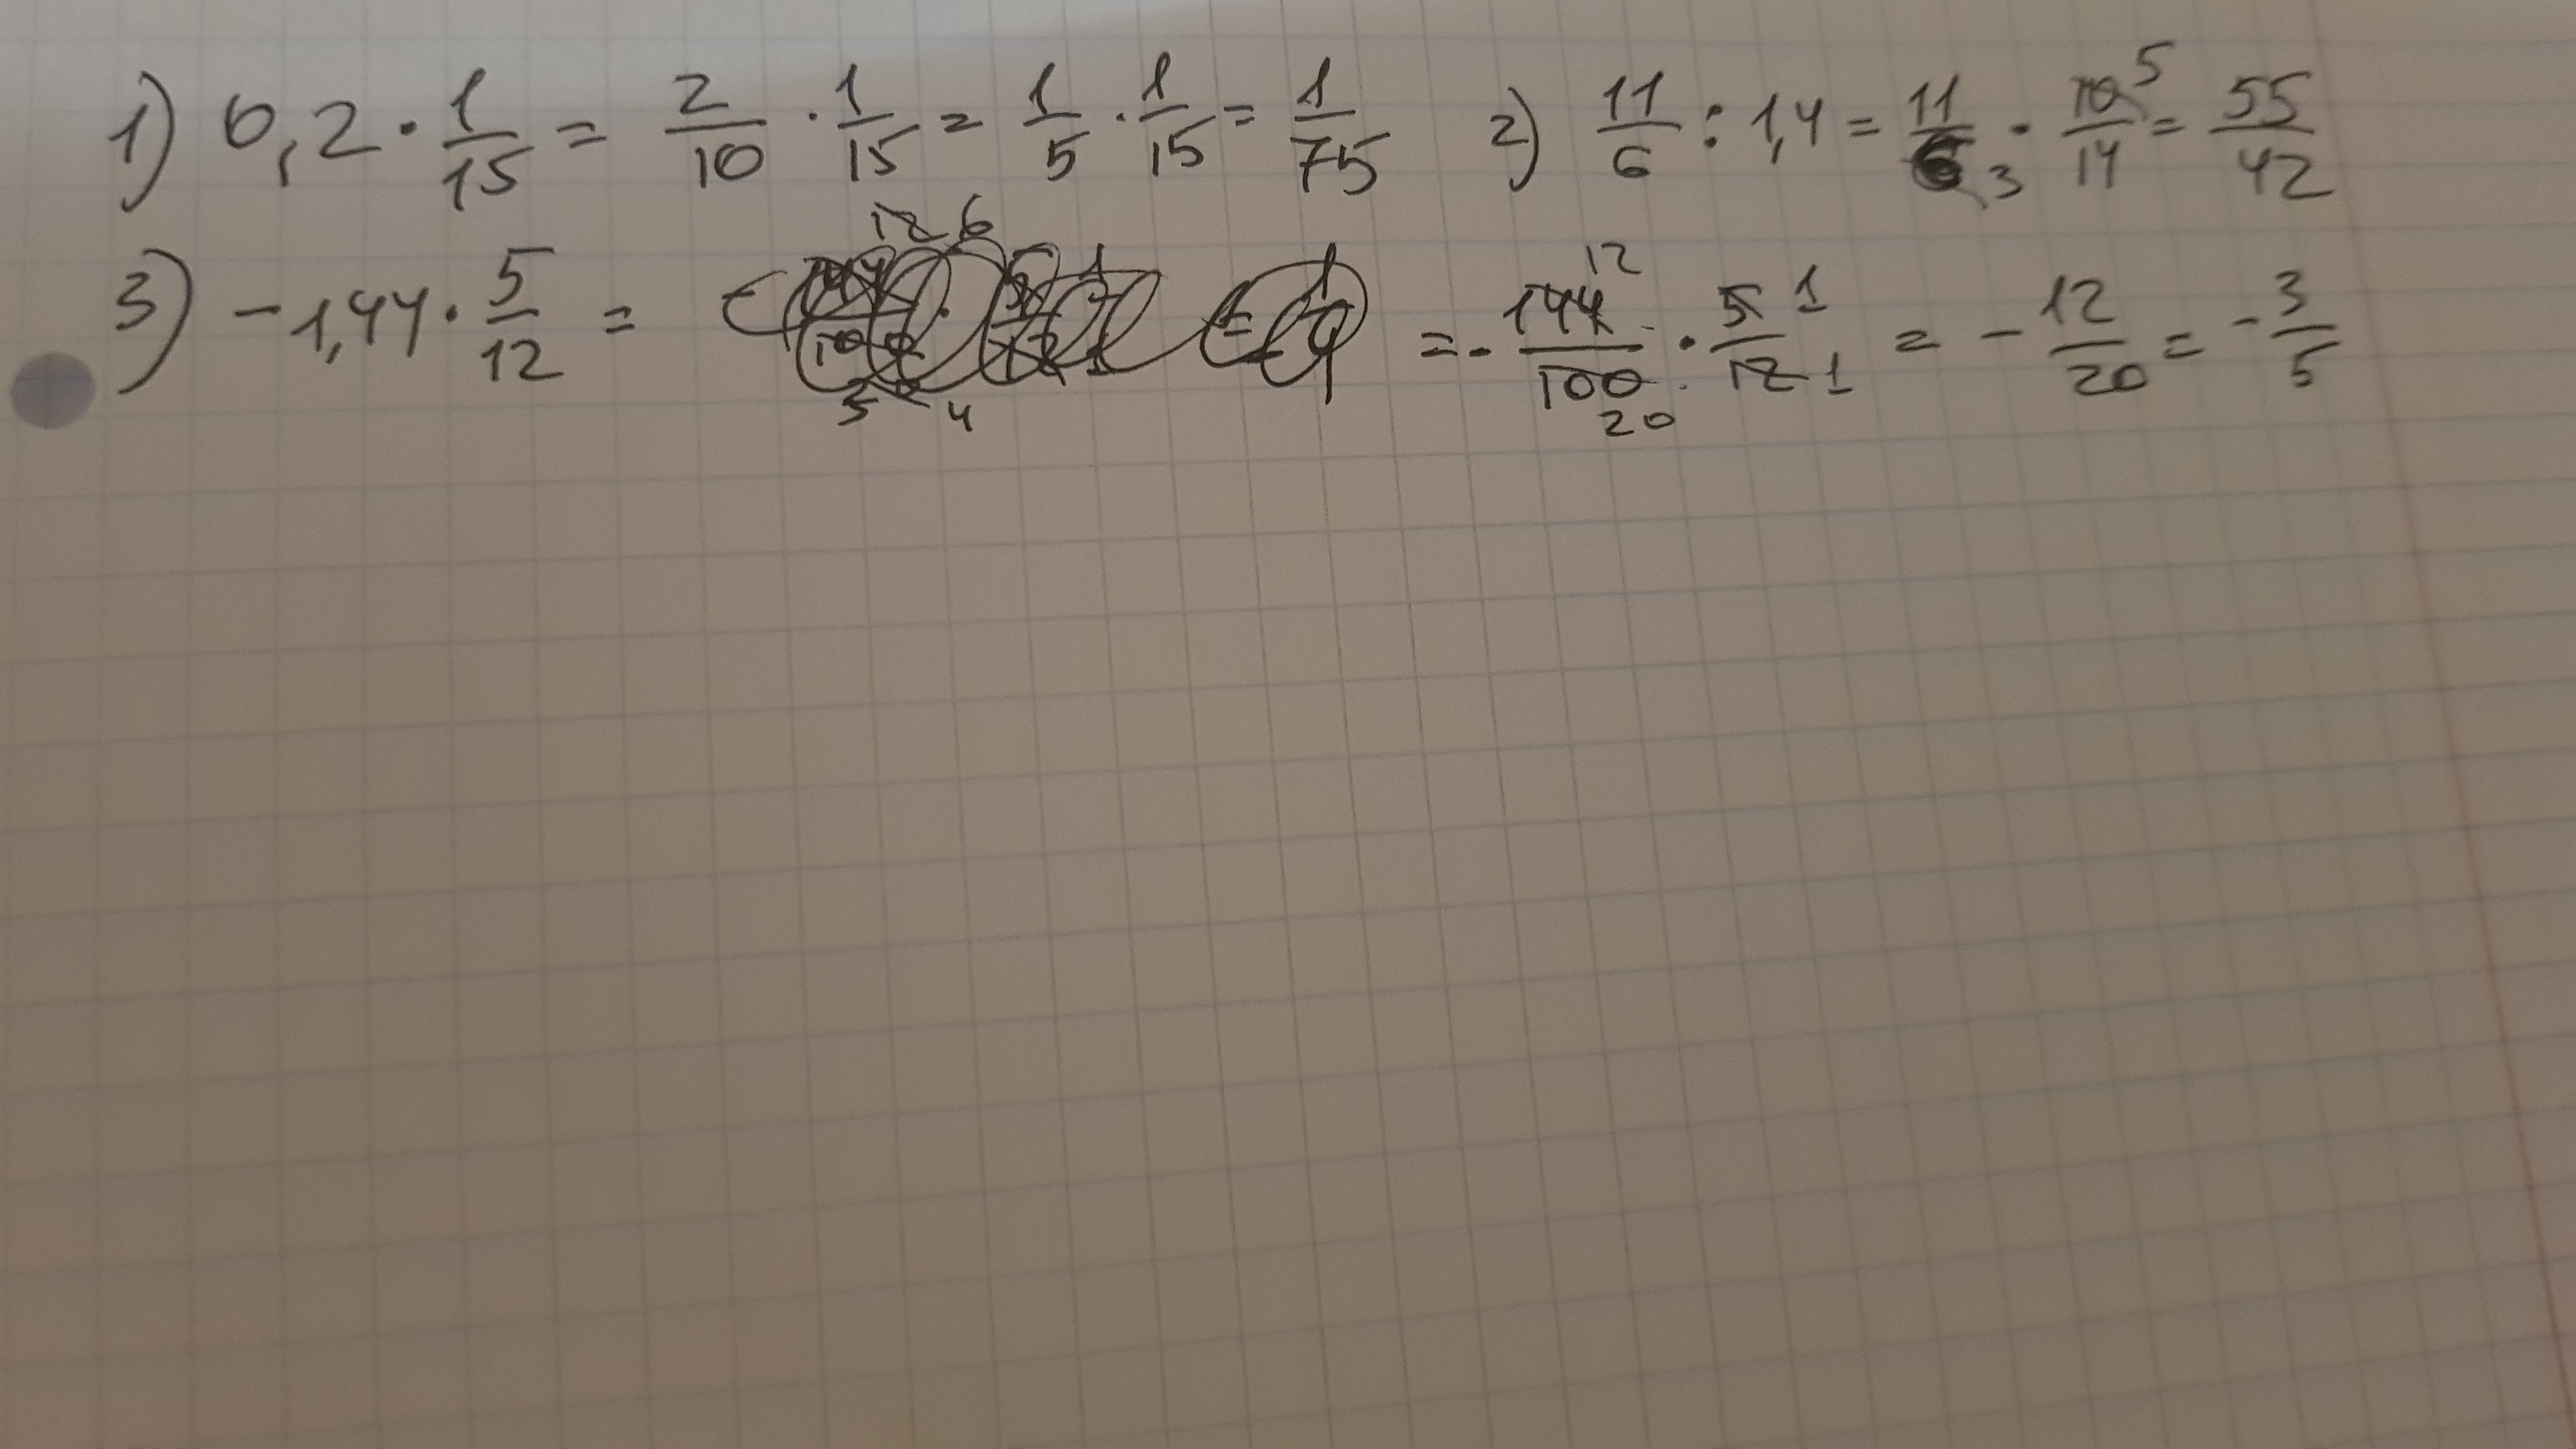 1) 0,2 · 1/15 = 2/10 · 1/15 = 1/5 · 1/15 = 1/75 2) 11/6 : 1,4 = 11/6 3 · 10 5/14 = 55/42
3) -1,44 · 5/12 = = - 144 12/100 20 · 5 1/12 1 = - 12/20 = - 3/5